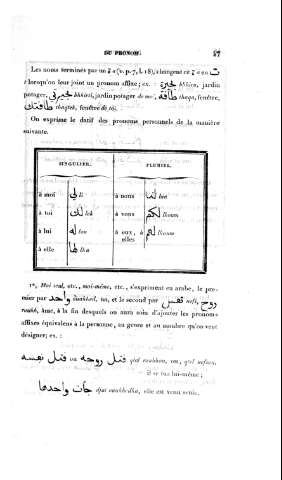 DU PRONOM. 27
Les noms terminés par un ة a (v. p. 7, l. 18), changent ce ة a en ت
t lorsqu'on leur joint un pronom affixe; ex. بحيرة bhhira, jardin
potager, بحيرتي bhhirti, jardin potager de moi; طاقة thaqa, fenêtre,
طاقتك thaqtek, fenêtre de toi.
On exprime le datif des pronoms personnels de la manière
suivante.
SINGULIER. PLURIEL.
à moi لي li à nous لنا lna
à toi لك lek à vous لكم lkoum
à lui له lou à eux, à elles لهم lhoum
à elle لها lha
1°. Moi seul, etc., moi-même, etc., s'expriment en arabe, le pre-
mier par واحد ouahhed, un, et le second par نفس nefs, روح
rouhh, âme, à la fin desquels on aura soin d'ajouter les pronoms
affixes équivalens à la personne, au genre et au nombre qu'on veut
désigner; ex. :
قتل روحه ou قتل نفسه qtel rouhhou, ou, qtel nefsou,
il se tua lui-même;
جات واحدها djat ouahhedha, elle est venue seule.